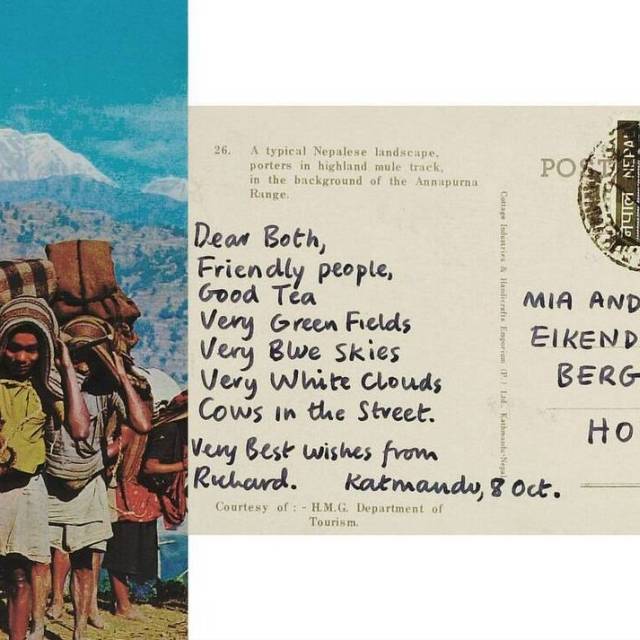 26. A typical Nepalese landscape,
porters in highland mule track,
in the background of the Annapurna
Range.
Dear Both,
Friendly people,
Good Tea
Very Green Fields
Very Blue Skies
Very White Clouds
Cows in the Street.
Very Best wishes from
Richard. Katmandu, 8 Oct.
Courtesy of : - H.M.G. Department of
Tourism.
Cottage Industries & Handicrafts Emporium (P.) Ltd., Kathmandu-Nepal
POST
नेपाल NEPAL
MIA AND
EIKEND
BERG
HO